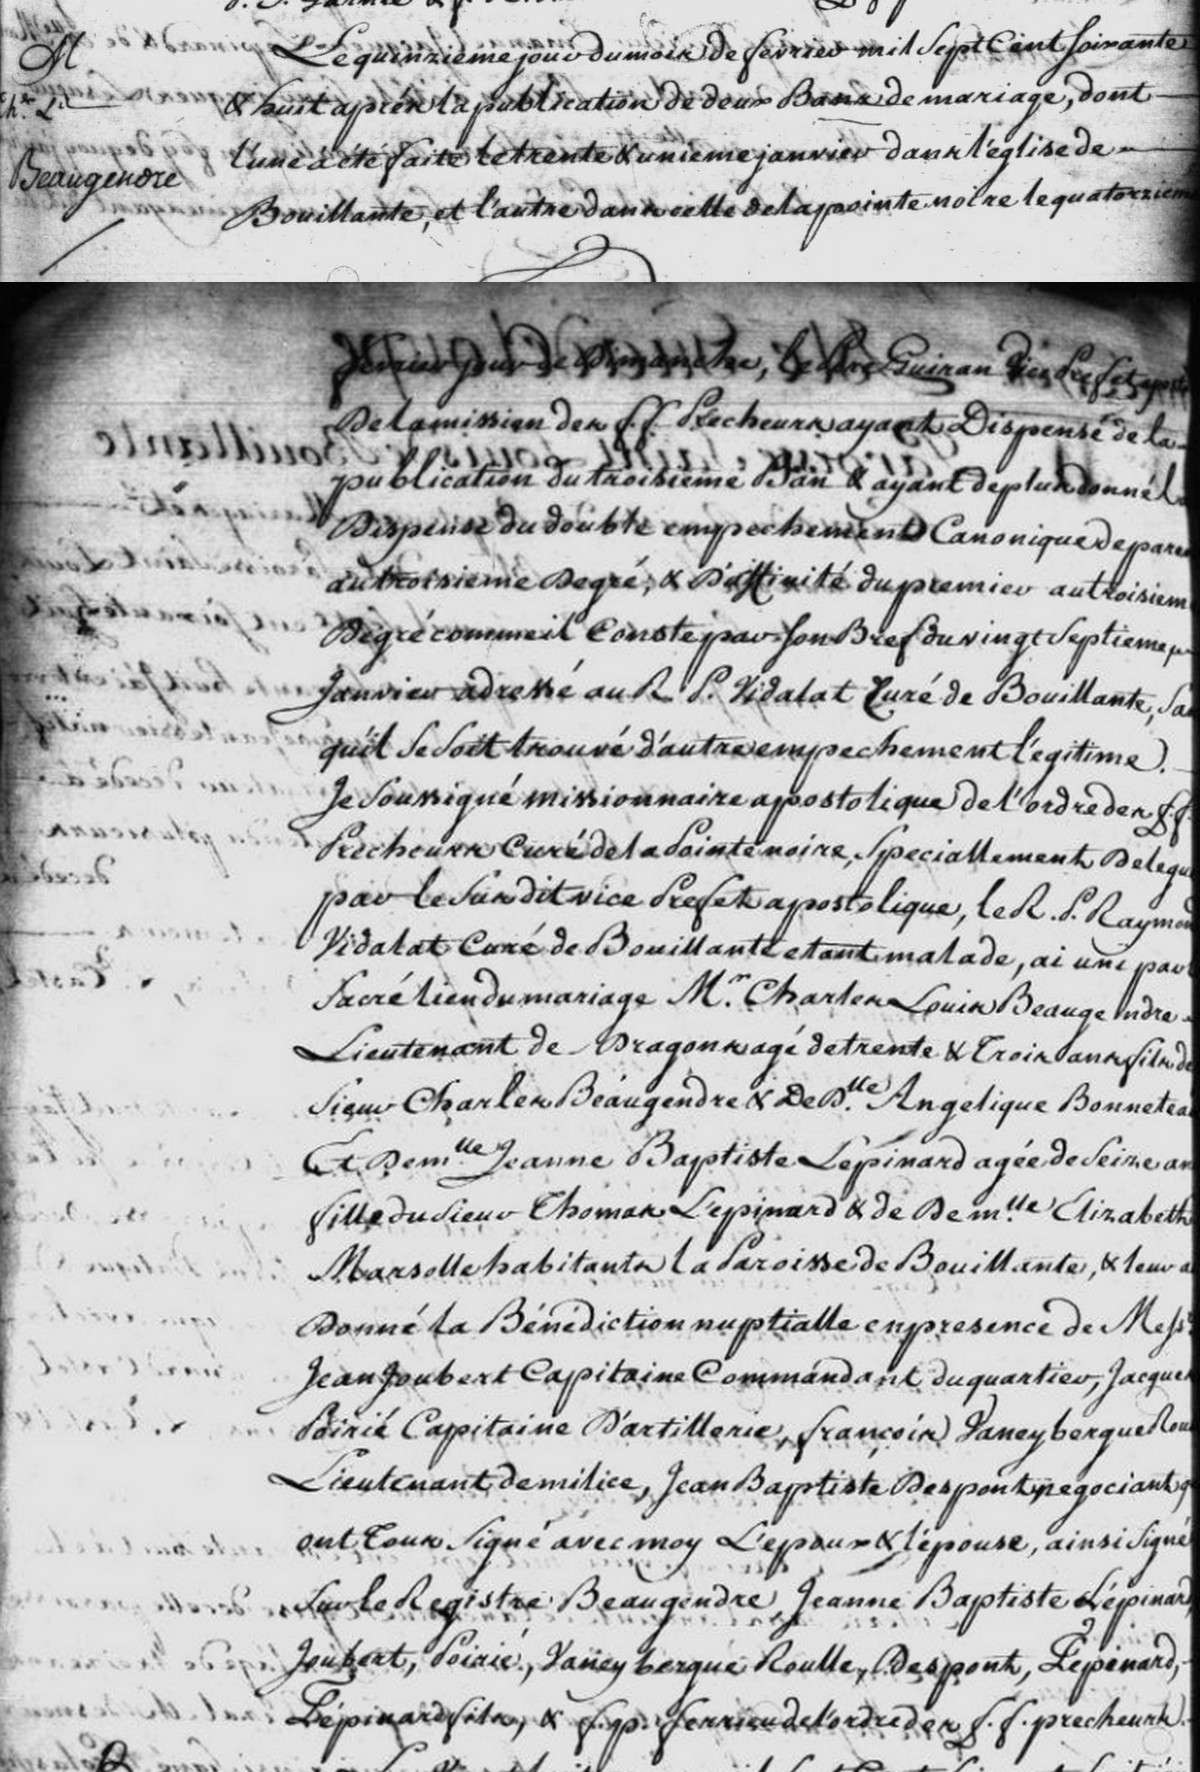 M
Ch.s L.s
Beaugendre
Le quinzieme jour du mois de fevrier mil Sept Cent soixante
& huit aprés la publication de deux Bans de mariage, dont
l'une à été faite le trente & unieme janvier dans l'église de
Bouillante, et l'autre dans celle de la pointe noire le quatorzieme
fevrier jour de Dimanche, le Pere Guiran Vice Prefet apost
De la mission des f.f. Precheurs ayant Dispensé de la
publication du troisieme Ban & ayant de plus donné la
Dispense du double empechement Canonique de paren
au troisieme Degré, & D'affinité du premier au troisiem
Degré comme il Conste par son Bref du vingt Septieme
Janvier adressé au R. P. Vidalat Curé de Bouillante, San
qu'il se soit trouvé d'autre empechement légitime).
Je Soussigné missionnaire apostolique de l'ordre des f.f.
Precheurs Curé de la Pointe noire, Speciallement Delegu
par le susdit vice Prefet apostolique, le R. P. Raymon
Vidalat Curé de Bouillante etant malade, ai uni par l
Sacré lien du mariage M.r Charles Louis Beaugendre
Lieutenant de Dragons agé de trente & Trois ans fils de
Sieur Charles Beaugendre & De D.lle Angelique Bonnetea
Et Dem.lle Jeanne Baptiste Lépinard agée de Seize an
fille du Sieur Thomas L'epinard & de Dem.lle Elizabeth
Marsolle habitants la Paroisse de Bouillante, & leur a
Donné la Bénédiction nuptialle en presence de Mess.rs
Jean Joubert Capitaine Commandant du quartier, Jacques
Poirié Capitaine D'artillerie, françois Vaneybergue Rou
Lieutenant de milice, Jean Baptiste Despont negociant, q
ont Tous Signé avec moy L'epoux & l'épouse, ainsi Signé
Sur le Registre Beaugendre, Jeanne Baptiste Lépinard
Joubert, Poirié, Vaneybergue Roulle, Despont, Lépinard,
Lépinard fils, & f. p. ferrieu de l'ordre des f.f. precheurs.